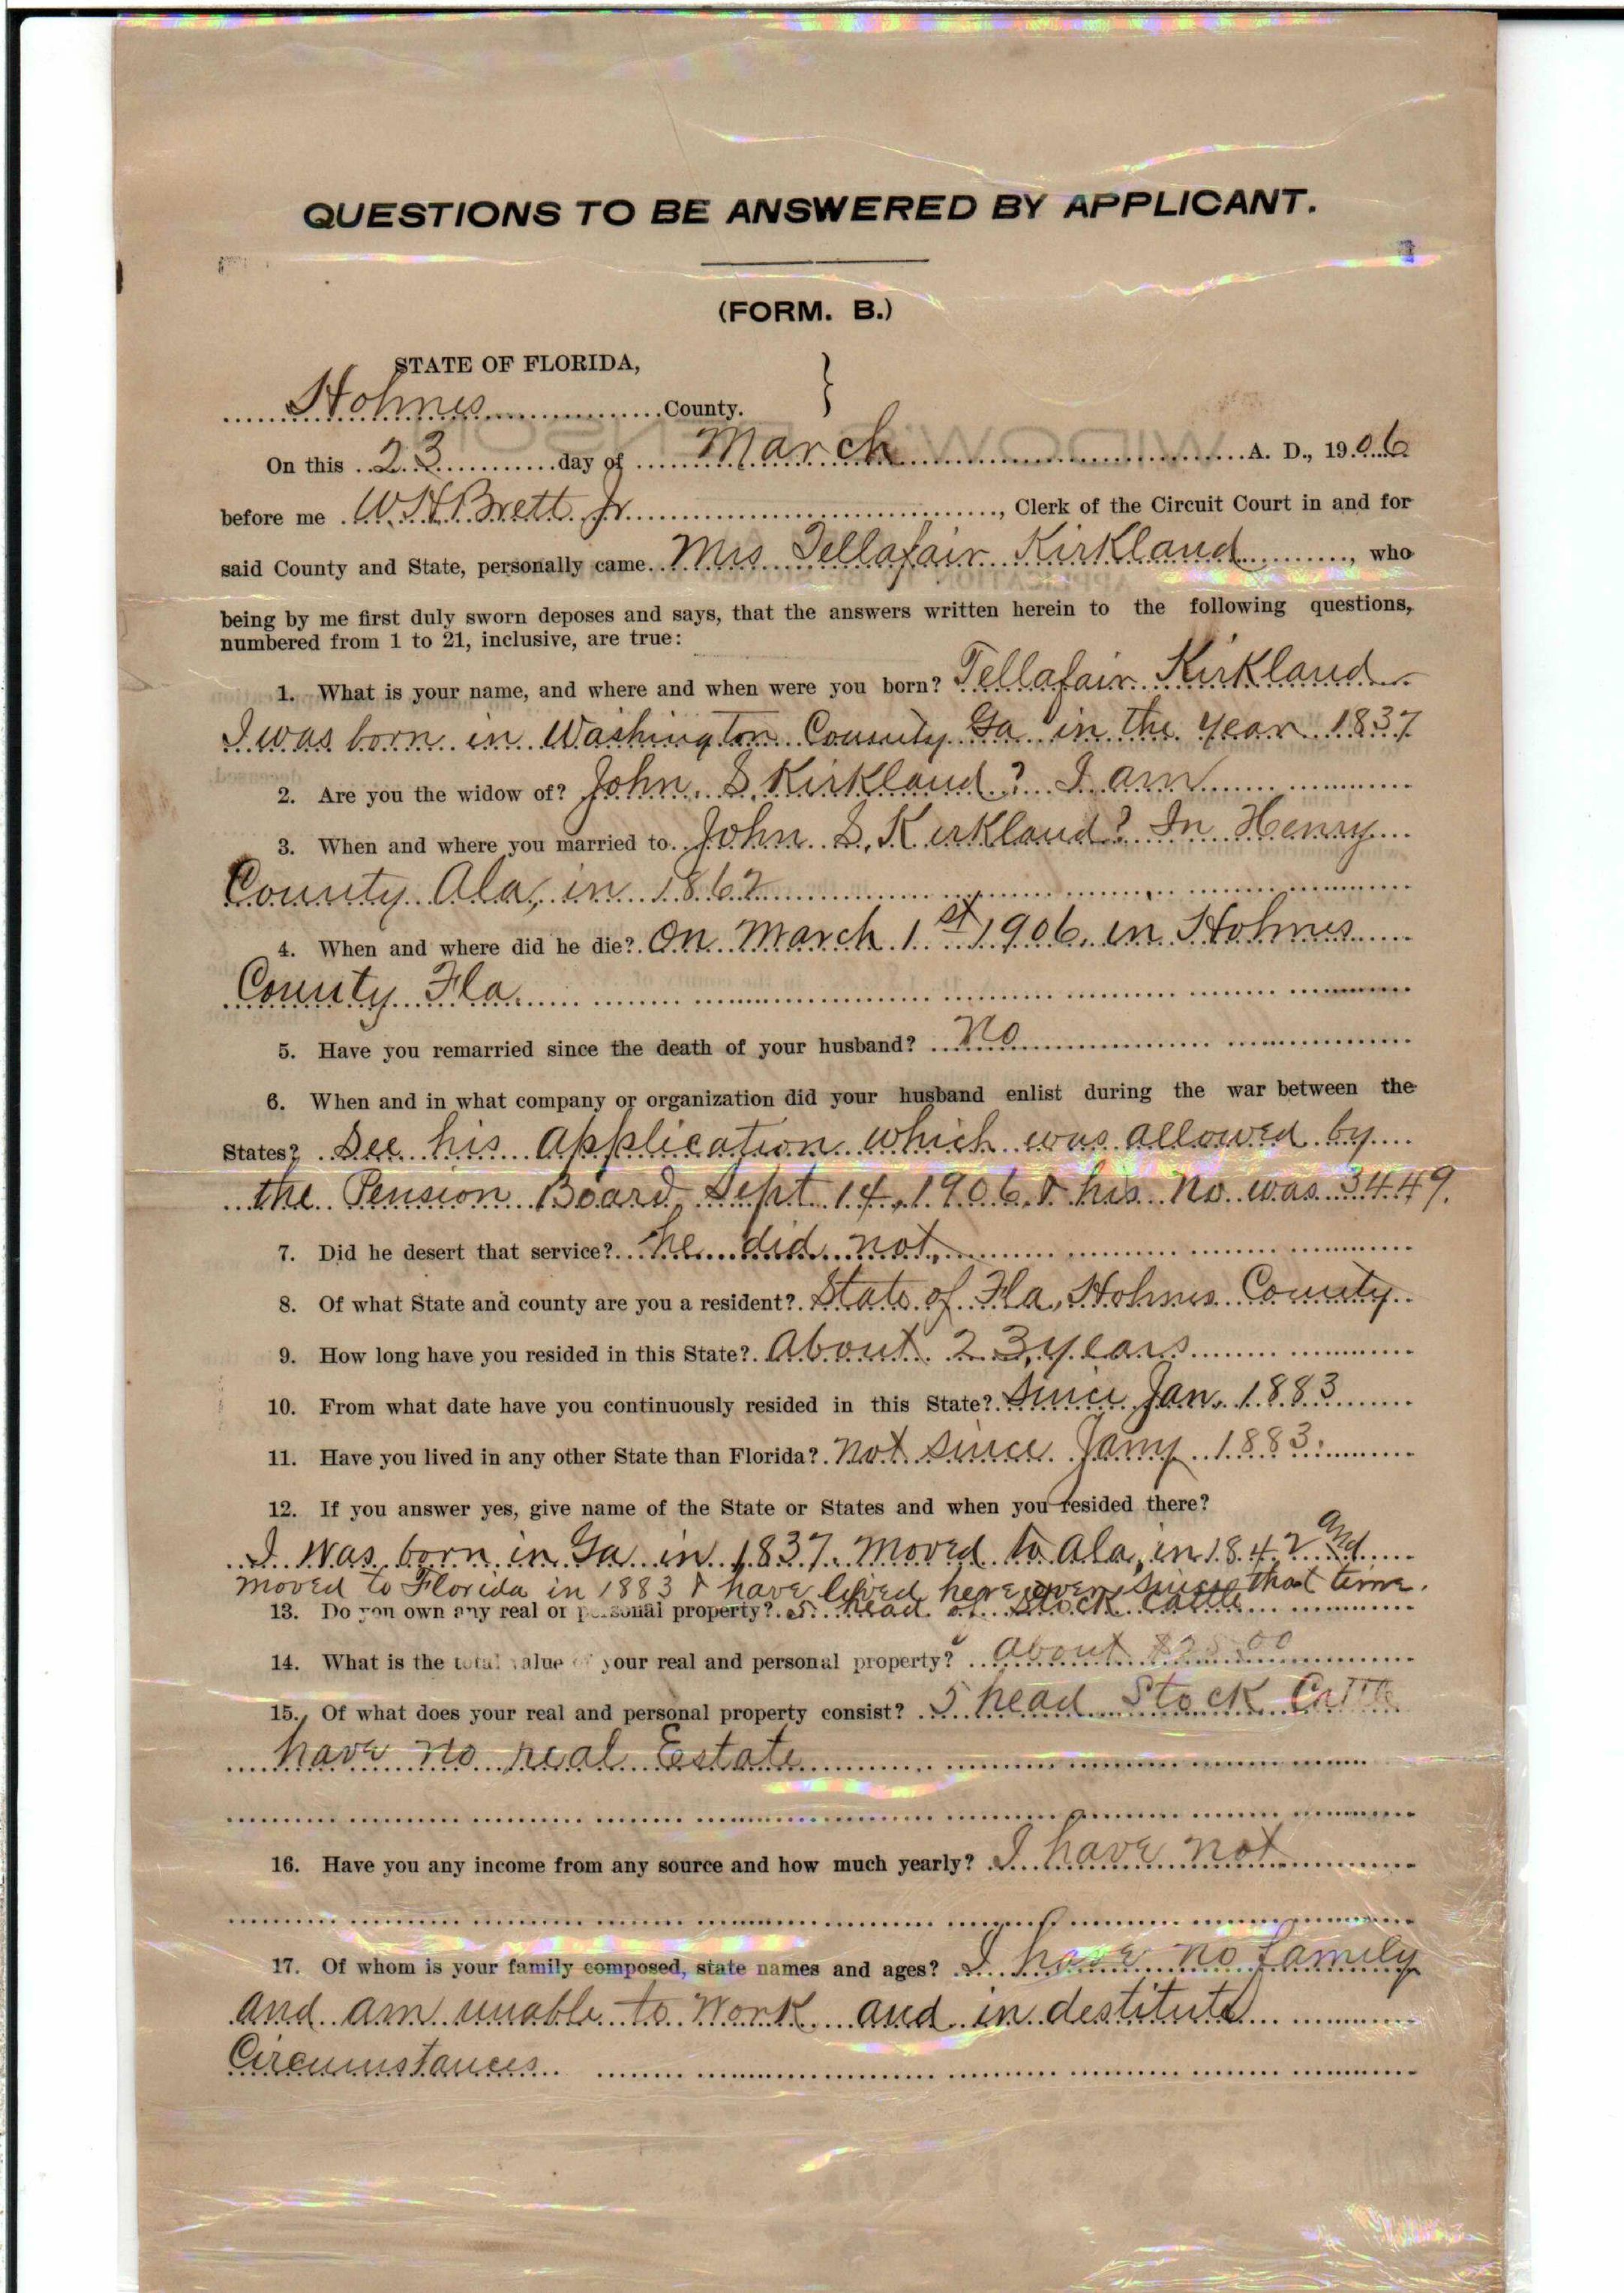 QUESTIONS TO BE ANSWERED BY APPLICANT.
(FORM. B.)
STATE OF FLORIDA,
Holmes County.
On this 23 day of March A. D., 1906
before me W. H. Brett Jr., Clerk of the Circuit Court in and for
said County and State, personally came Mrs Tellafair Kirkland, who
being by me first duly sworn deposes and says, that the answers written herein to the following questions,
numbered from 1 to 21, inclusive, are true:
1. What is your name, and where and when were you born? Tellafair Kirkland
I was born in Washington County Ga in the year 1837
2. Are you the widow of? John S. Kirkland? I am
3. When and where you married to John S. Kirkland? In Henry
County Ala, in 1862
4. When and where did he die? On March 1st 1906, in Holmes
County Fla.
5. Have you remarried since the death of your husband? No
6. When and in what company or organization did your husband enlist during the war between the
States? See his application which was allowed by
the Pension Board, Sept 14, 1906 & his No was 3449.
7. Did he desert that service? he did not,
8. Of what State and county are you a resident? State of Fla, Holmes County
9. How long have you resided in this State? About 23 years
10. From what date have you continuously resided in this State? Since Jan. 1883
11. Have you lived in any other State than Florida? Not since Jany 1883.
12. If you answer yes, give name of the State or States and when you resided there?
I Was born in Ga in 1837. Moved to Ala, in 1842 and
moved to Florida in 1883 & have lived here ever since that time.
13. Do you own any real or personal property? 5 head of Stock Cattle
14. What is the total value of your real and personal property? About $25.00
15. Of what does your real and personal property consist? 5 head Stock Cattle
have no real Estate
16. Have you any income from any source and how much yearly? I have not
17. Of whom is your family composed, state names and ages? I have no family
and am unable to Work and in destitute
Circumstances